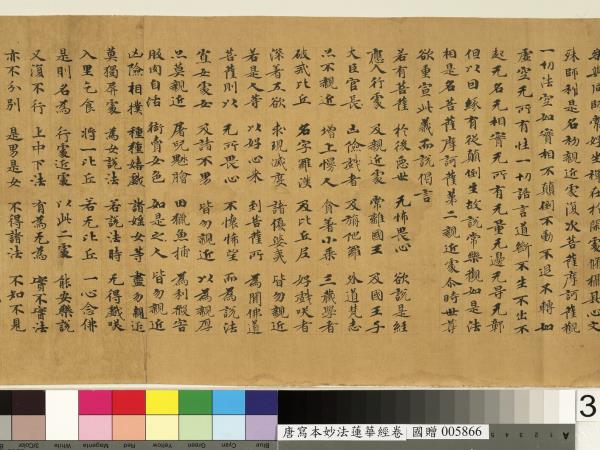 樂與同師常好坐禪在於閑處脩攝其心文
殊師利是名初親近處復次菩薩摩訶薩觀
一切法空如實相不顛倒不動不退不轉如
虛空无所有性一切語言道斷不生不出不
起无名无相實无所有无量无邊无㝵无鄣
但以因緣有從顛倒生故說常樂觀如是法
相是名菩薩摩訶薩第二親近處尒時世尊
欲重宣此義而說偈言
若有菩薩 於後惡世 无怖畏心 欲說是經
應入行處 及親近處 常離國王 及國王子
大臣官長 凶險戲者 及旃陁羅 外道梵志
亦不親近 增上慢人 貪著小乘 三藏學者
破戒比丘 名字羅漢 及比丘尼 好戲咲者
深著五欲 求現滅度 諸優婆夷 皆勿親近
若是人等 以好心來 到菩薩所 為聞佛道
菩薩則以 无所畏心 不懷悕望 而為說法
寡女處女 及諸不男 皆勿親近 以為親厚
亦莫親近 屠兒魁膾 田獵魚捕 為利煞害
販肉自活 衒賣女色 如是之人 皆勿親近
凶險相撲 種種嬉戲 諸婬女等 盡勿親近
莫獨屏處 為女說法 若說法時 无得戲咲
入里乞食 將一比丘 若无比丘 一心念佛
是則名為 行處近處 以此二處 能安樂說
又復不行 上中下法 有為无為 實不實法
亦不分別 是男是女 不得諸法 不知不見
唐寫本妙法蓮華經卷 國贈 005866
3/Color White Magenta Red Yellow Green Cyan Blue
A
3